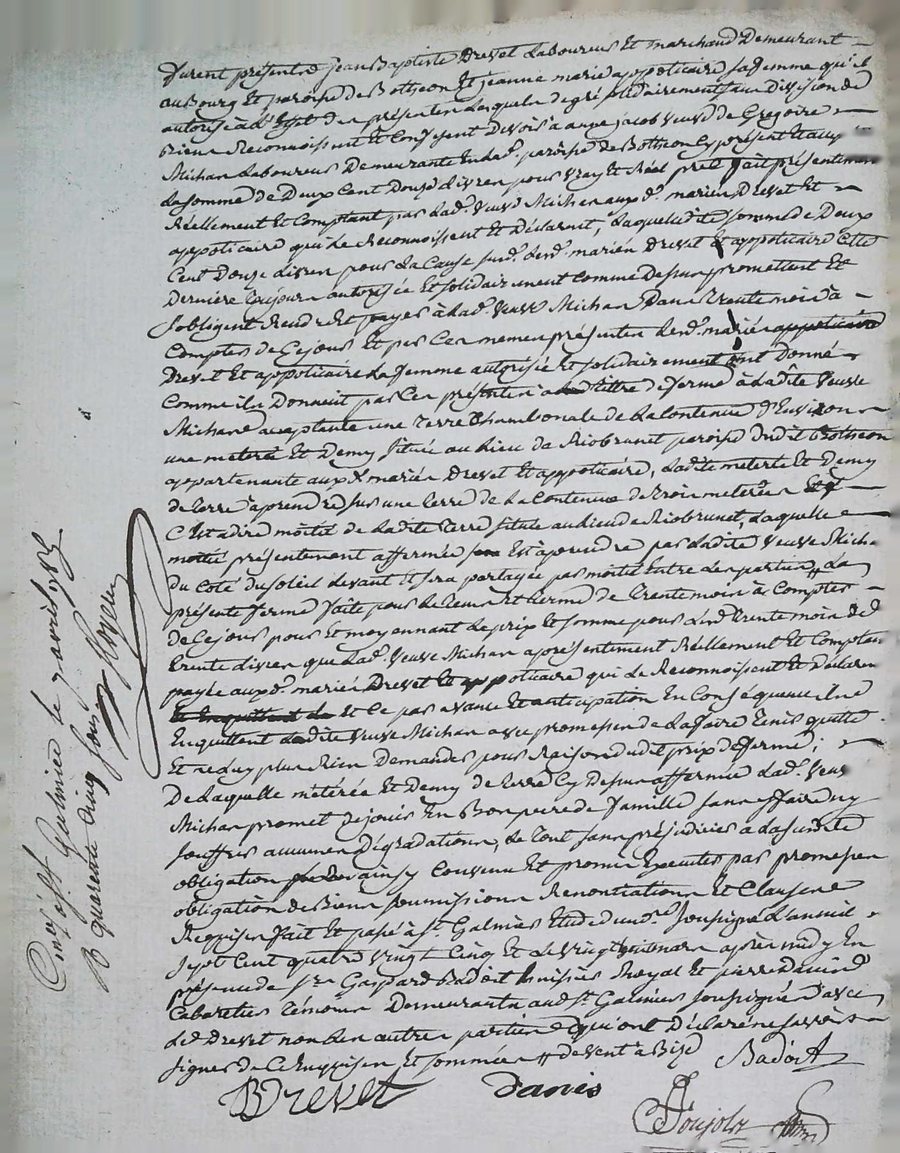 furent présents jean Baptiste Drevet Laboureur Et marchand Demeurant
au Bourg Et paroisse de Botheon Et jeanne marie appoticaire sa femme qu'il
autorise à l'Effet des présentes Lesquels de gré solidairement sans Division de
Biens Reconnoissent Et Confessent Devoir à anne jacob veuve de Gregoire
Michan Laboureur Demeurante En lad. paroisse de Botheon Cy présent Et acc
La somme de Deux Cent Douze Livres pour vray Et Réel prêt fait présentement
Réellement Et Comptant par Lad. veuve Michan auxd. mariés Drevet Et
appoticaire qui Le Reconnoissent Et Déclarent, Laquelle dite somme de Deux
Cent Douze Livres pour La Cause susd. Lesd. mariés Drevet Et appoticaire Cette
Dernière toujours autorisée Et solidairement Comme Dessus promettent Et
s'obligent Rendre Et payer à Lad. veuve Michan Dans trente mois à
Compter de Ce jour Et par Ces memes présentes Lesd. mariés appoticaire
Drevet Et appoticaire sa femme autorisée Et solidairement ont Donné
Comme ils Donnent par Ces présentes à titre de ferme à Ladite veuve
Michan acceptante une terre Chambonale de La Contenue d'Environ
une meterée Et Demy située au Lieu de Riobrunet paroisse dudit Botheon
appartenante aux d. mariés Drevet Et appoticaire, Ladite meterée Et Demy
de terre à prendre sur une terre de La Contenue de trois meterées
C'Est à dire moitié de Ladite terre située au Lieu de Riobrunet, Laquelle
moitié présentement affermée Est à prendre par Ladite veuve Micha
du Coté du soleil Levant Et sera partagée par moitié Entre Les parties, La
présente ferme faite pour Le tems Et terme de trente mois à Compter
de Ce jour pour Et moyennant Le prix Et somme pour Lesd. trente mois de
trente Livres que Lad. veuve Michan a présentement Réellement Et Comptant
payée auxd. mariés Drevet Et appoticaire qui Le Reconnoissent Et Déclarent
Et Enquittent La Et Ce par avance Et anticipation En Conséquence ils
Enquittent Ladite veuve Michan avec promesses de La faire tenir quitte
Et ne luy plus Rien Demander pour Raison dudit prix de ferme;
De Laquelle métérée Et Demy de terre Cy Dessus affermée Lad. veuve
Michan promet de jouir En Bon pere de famille sans y faire ny
souffrir aucunes Dégradations, Le tout sans préjudicier à La susdite
obligation ainsy Convenu Et promis Executer par promesses
obligation de Biens soumissions Renontiations Et Clauses
Requises fait Et passé à St. Galmier Etude du notre soussigné L'an mil
sept Cent quatre vingt Cinq Et Le vingt mars après midy En
présence de sr. Gaspard Badoit huissier Royal Et pierre Danis
Cabaretier témoins Demeurants aud. St. Galmier soussignés avec
Led. Drevet non Les autres parties qui ont Déclaré ne savoir
signer de Ce Enquises Et sommées
Badoit
B Drevet
Danis
Poujol
Conlé Et à St Galmier le 7 avril 1785
R quarente Cinq sous